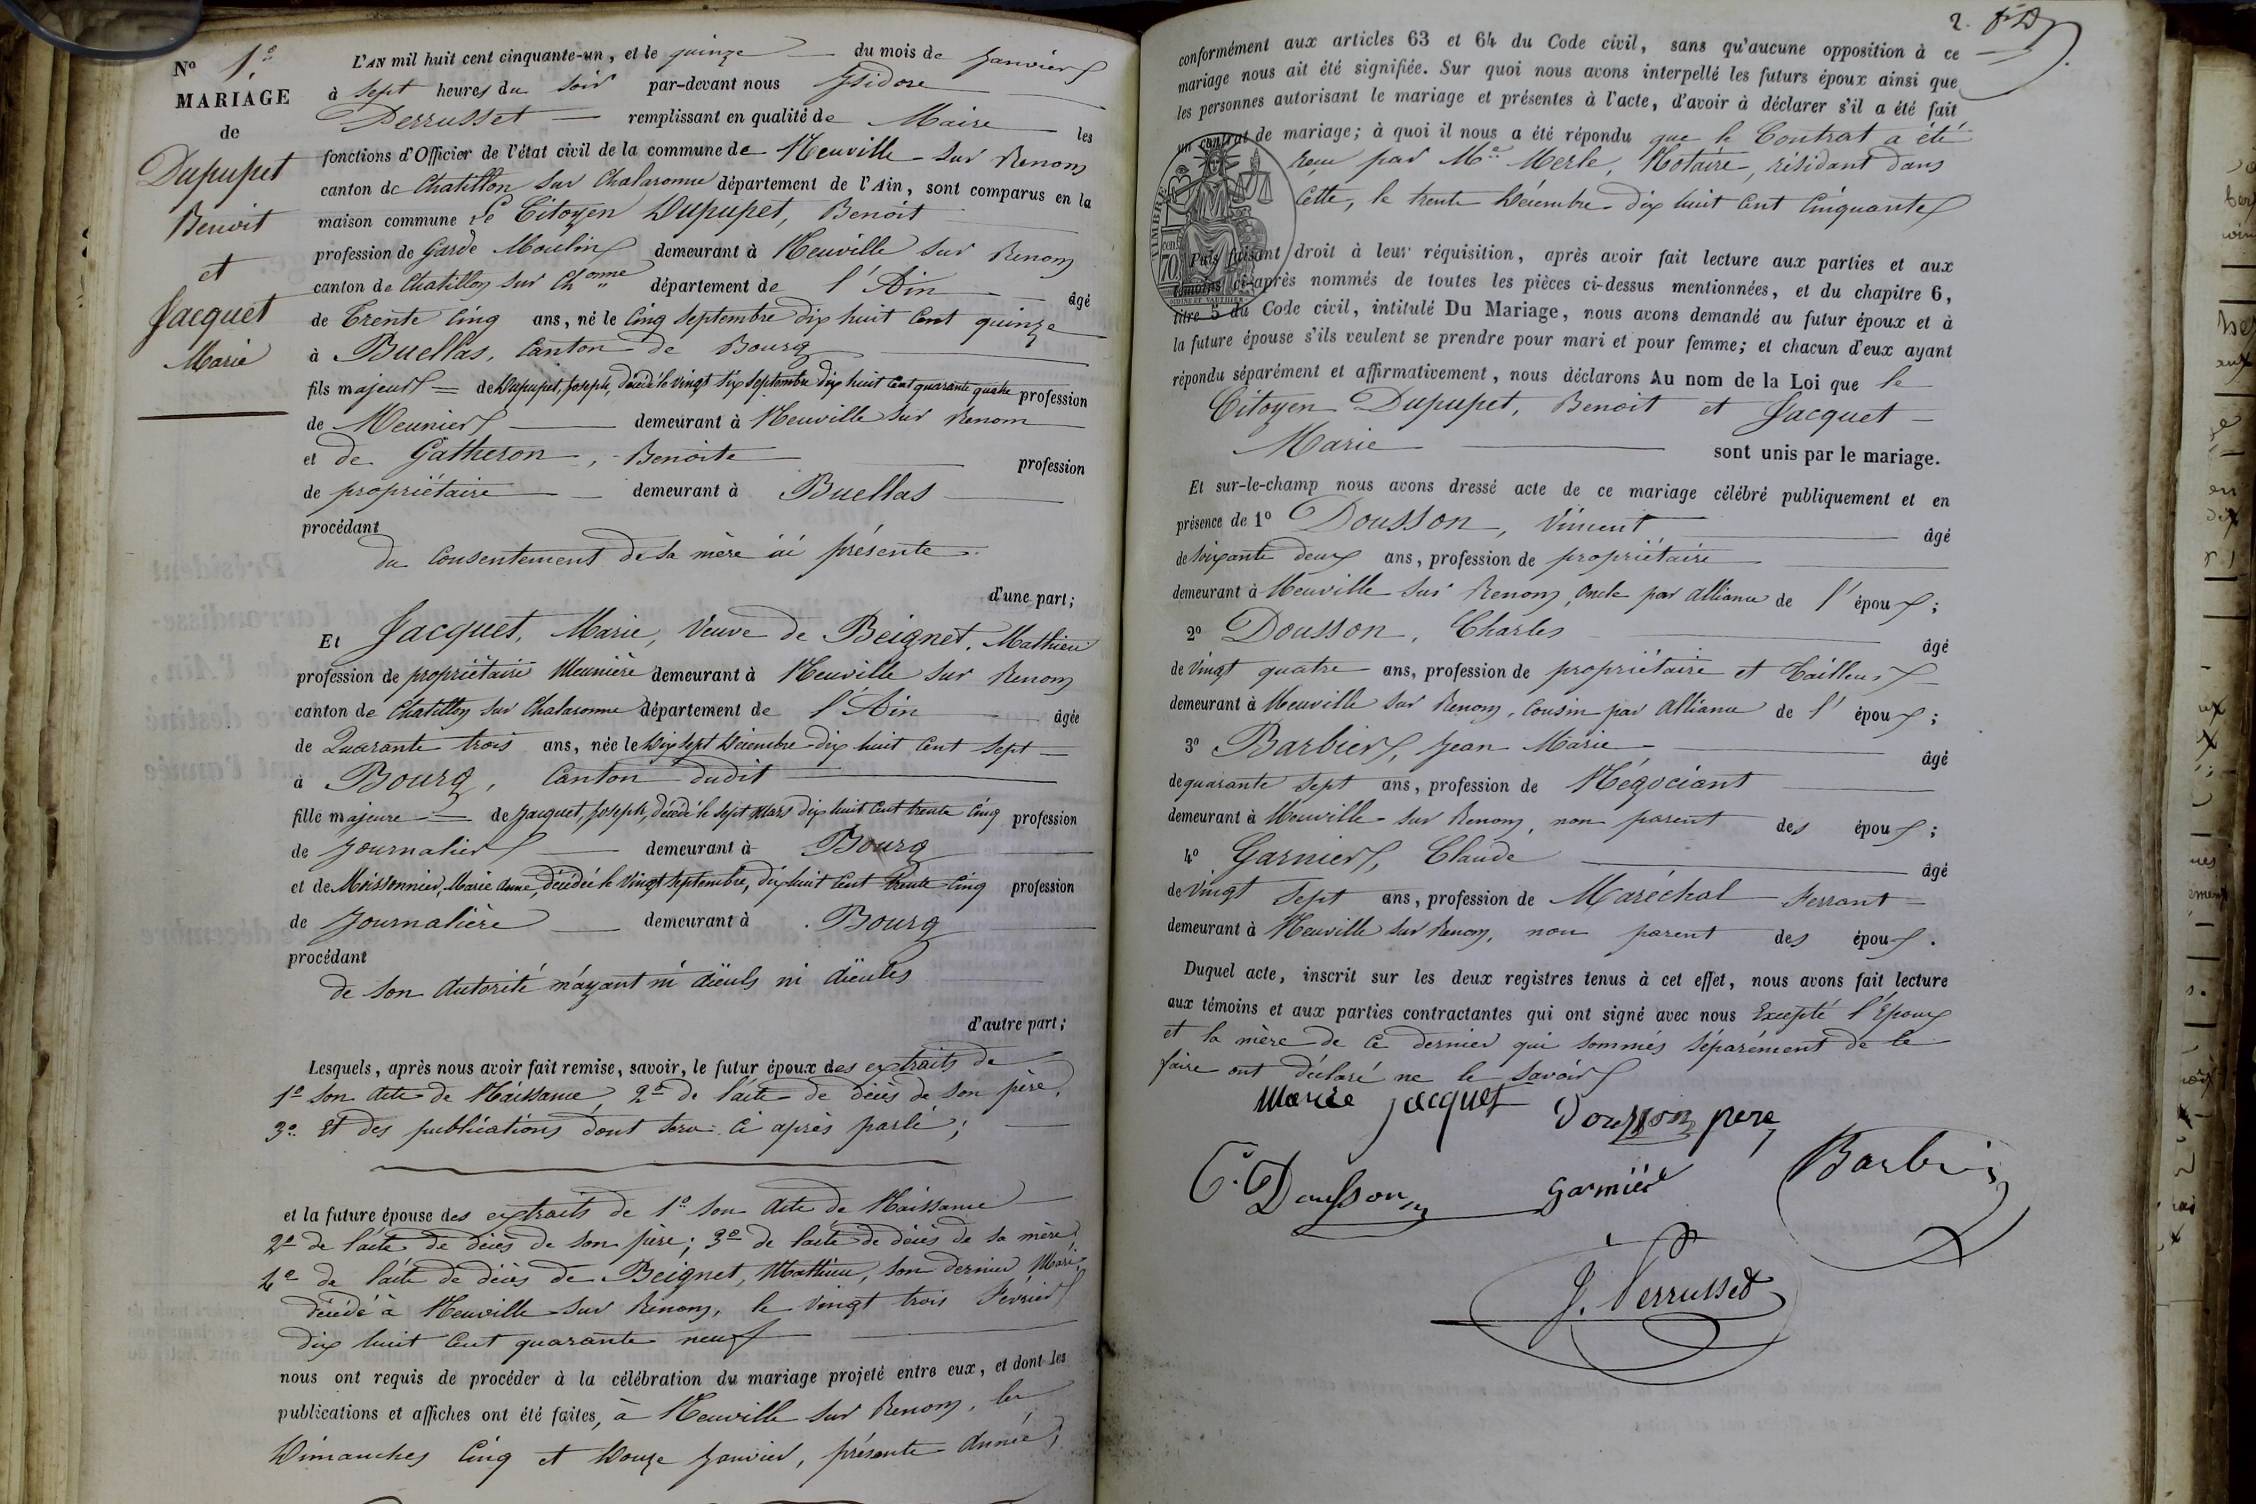 Nº 1º
MARIAGE
de
Dupupet
Benoit
et
Jacquet
Marie
L'AN mil huit cent cinquante-un, et le quinze du mois de Janvier
à Sept heures du Soir par-devant nous Isidore
Perrusset remplissant en qualité de Maire les
fonctions d'Officier de l'état civil de la commune de Neuville-sur Renom
canton de Chatillon sur Chalaronne département de l'Ain, sont comparus en la
maison commune Le Citoyen Dupupet, Benoit
profession de Garde Moulin demeurant à Neuville sur Renom
canton de Chatillon sur Chonne département de l'Ain âgé
de Trente Cinq ans, né le Cinq Septembre dix huit Cent quinze
à Buellas, Canton de Bourg
fils majeur de Dupupet, Joseph, décédé le vingt six Septembre dix huit Cent quarante quatre profession
de Meunier demeurant à Neuville sur Renom
et de Gatheron, Benoite profession
de propriétaire demeurant à Buellas
procédant
du Consentement de sa mère ici présente
d'une part;
Et Jacquet, Marie, Veuve de Beignet, Mathieu
profession de propriétaire Meunière demeurant à Neuville sur Renom
canton de Chatillon sur Chalaronne département de l'Ain âgée
de Quarante trois ans, née le Dix sept Décembre dix huit Cent Sept
à Bourg, Canton dudit
fille majeure de Jacquet, Joseph, décédé le Sept Mars dix huit Cent trente Cinq profession
de Journalier demeurant à Bourg
et de Moissonnier, Marie Anne, décédée le Vingt Septembre, dix huit Cent trente Cinq profession
de Journalière demeurant à Bourg
procédant
de son Autorité n'ayant ni aïeuls ni aïeules
d'autre part;
Lesquels, après nous avoir fait remise, savoir, le futur époux des extraits de
1º son Acte de Naissance, 2º de l'acte de décès de son père,
3º Et des publications dont sera Ci après parlé;
et la future épouse des extraits de 1º son Acte de Naissance
2º de l'acte de décès de son père; 3º de l'acte de décès de sa mère
4º de l'acte de décès de Beignet, Mathieu, son dernier Mari
décédé à Neuville sur Renom, le vingt trois Février
dix huit Cent quarante neuf
nous ont requis de procéder à la célébration du mariage projeté entre eux, et dont les
publications et affiches ont été faites, à Neuville sur Renom, les
Dimanches Cinq et Douze Janvier, présente Année,
2.
conformément aux articles 63 et 64 du Code civil, sans qu'aucune opposition à ce
mariage nous ait été signifiée. Sur quoi nous avons interpellé les futurs époux ainsi que
les personnes autorisant le mariage et présentes à l'acte, d'avoir à déclarer s'il a été fait
un contrat de mariage; à quoi il nous a été répondu que le Contrat a été
reçu par Me Merle, Notaire, résidant dans
Cette, le trente Décembre dix huit Cent Cinquante
TIMBRE
70 cent
Puis faisant droit à leur réquisition, après avoir fait lecture aux parties et aux
témoins ci-après nommés de toutes les pièces ci-dessus mentionnées, et du chapitre 6,
titre 5 du Code civil, intitulé Du Mariage, nous avons demandé au futur époux et à
la future épouse s'ils veulent se prendre pour mari et pour femme; et chacun d'eux ayant
répondu séparément et affirmativement, nous déclarons Au nom de la Loi que le
Citoyen Dupupet, Benoit et Jacquet
Marie sont unis par le mariage.
Et sur-le-champ nous avons dressé acte de ce mariage célébré publiquement et en
présence de 1º Dousson, Vincent âgé
de soixante deux ans, profession de propriétaire
demeurant à Neuville sur Renom, oncle par Alliance de l'époux;
2º Dousson, Charles âgé
de Vingt quatre ans, profession de propriétaire et Tailleur
demeurant à Neuville sur Renom, Cousin par Alliance de l'époux;
3º Barbier, Jean Marie âgé
de quarante Sept ans, profession de Négociant
demeurant à Neuville-sur Renom, non parent des époux;
4º Garnier, Claude âgé
de Vingt Sept ans, profession de Maréchal Ferrant
demeurant à Neuville sur Renom, non parent des époux.
Duquel acte, inscrit sur les deux registres tenus à cet effet, nous avons fait lecture
aux témoins et aux parties contractantes qui ont signé avec nous Excepté l'époux
et la mère de ce dernier qui sommés séparément de le
faire ont déclaré ne le Savoir
Marie Jacquet Dousson pere
C. Dousson Garnier Barbier
J. Perrusset